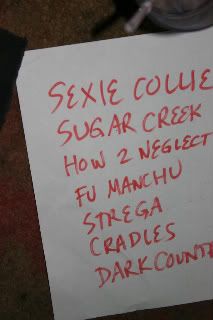 SEXIE COLLIE
SUGAR CREEK
HOW 2 NEGLECT
FU MANCHU
STREGA
CRADLES
DARK COUNT